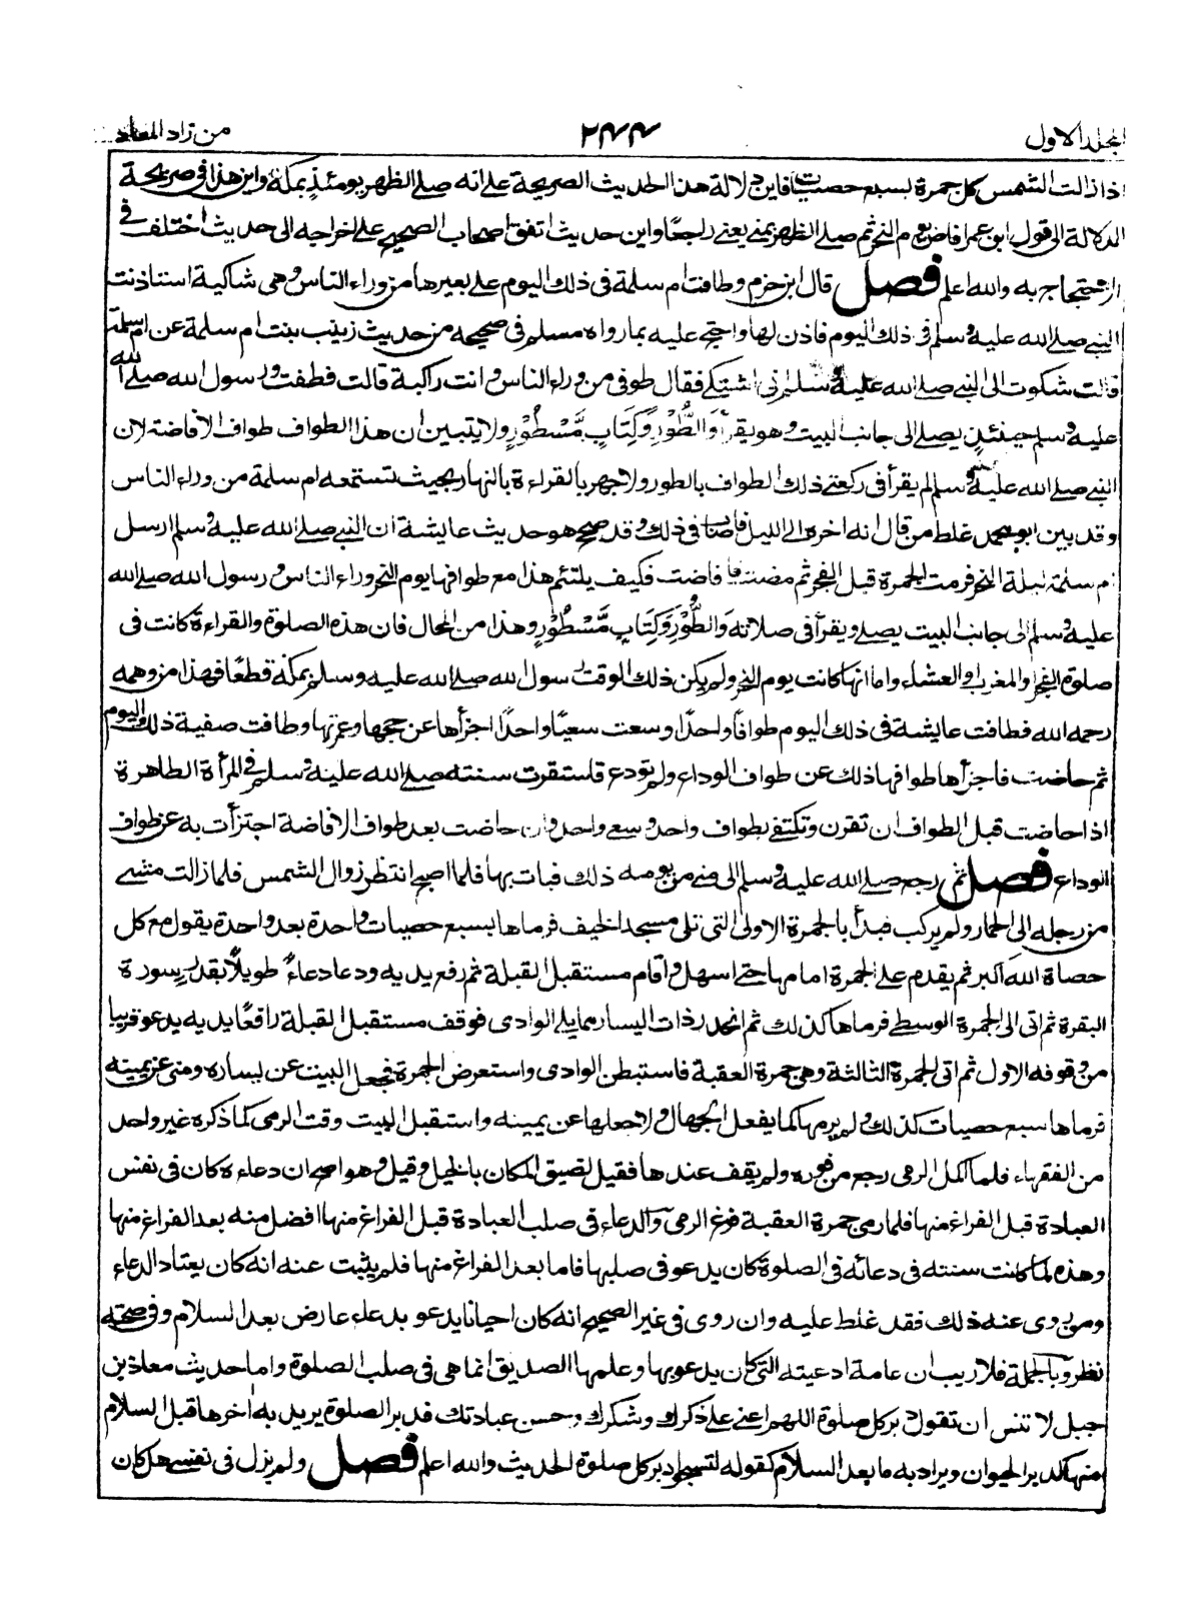 المجلد الاول
٢٤٤
من زاد المعاد
اذا زالت الشمس كل جمرة بسبع حصيات فاين دلالة هذا الحديث الصريحة على انه صلے الظهر يومئذ بمكة واين هذا فى صريحة
الدلالة الى قول ابن عمر افاض يوم النحر ثم صلے الظهر بمنى يعنى راجعًا واين حديث اتفق اصحاب الصحيح على اخراجه الى حديث اختلف فى
الاحتجاج به والله اعلم فصل قال ابن حزم وطافت ام سلمة فى ذلك اليوم على بعيرها من وراء الناس وهى شاكية استاذنت
النبى صلے الله عليه وسلم فى ذلك اليوم فاذن لها واحتج عليه بما رواه مسلم فى صحيحه من حديث زينب بنت ام سلمة عن ام سلمة
قالت شكوت الى النبى صلے الله عليه وسلم انى اشتكے فقال طوفى من وراء الناس وانت راكبة قالت فطفت ورسول الله صلے الله
عليه وسلم حينئذٍ يصلے الى جانب البيت وهو يقرأ وَالطُّوْرِ وَكِتَابٍ مَّسْطُوْرٍ ولا يتبين ان هذا الطواف طواف الافاضة لان
النبى صلے الله عليه وسلم لم يقرأ فى ركعتے ذلك الطواف بالطور ولا جهر بالقراءة بالنهار بحيث تستمعه ام سلمة من وراء الناس
وقد بين ابو محمد غلط من قال انه اخره الى الليل فاصاب فى ذلك وقد صح هو حديث عايشة ان النبى صلے الله عليه وسلم ارسل
ام سلمة ليلة النحر فرمت الجمرة قبل الفجر ثم مضت فافاضت فكيف يلتئم هذا مع طوافها يوم النحر وراء الناس ورسول الله صلے الله
عليه وسلم الى جانب البيت يصلے ويقرأ فى صلاته وَالطُّوْرِ وَكِتَابٍ مَّسْطُوْرٍ وهذا من المحال فان هذه الصلوة والقراءة كانت فى
صلوة الفجر او المغرب او العشاء واما انها كانت يوم النحر ولم يكن ذلك الوقت رسول الله صلے الله عليه وسلم بمكة قطعًا فهذا من وهمه
رحمه الله فطافت عايشة فى ذلك اليوم طوافًا واحدًا وسعت سعيًا واحدًا اجزأها عن حجها وعمرتها وطافت صفية ذلك اليوم
ثم حاضت فاجزأها طوافها ذلك عن طواف الوداع ولم تودع فاستقرت سنته صلے الله عليه وسلم فى المرأة الطاهرة
اذا حاضت قبل الطواف ان تقرن وتكتفے بطواف واحد وسعے واحد وان حاضت بعد طواف الافاضة اجتزأت به عن طواف
الوداع فصل ثم رجع صلے الله عليه وسلم الى منے من يومه ذلك فبات بها فلما اصبح انتظر زوال الشمس فلما زالت مشے
من رجله الى الجمار ولم يركب فبدأ بالجمرة الاولى التى تلى مسجد الخيف فرماها بسبع حصيات واحدة بعد واحدة يقول مع كل
حصاة الله اكبر ثم يقدم على الجمرة امامها حتے اسهل واقام مستقبل القبلة ثم رفع يديه ودعا دعاءً طويلًا بقدر سورة
البقرة ثم اتى الى الجمرة الوسطے فرماها كذلك ثم انحدر ذات اليسار مما يلى الوادى فوقف مستقبل القبلة رافعًا يديه يدعو قريبا
من وقوفه الاول ثم اتى الجمرة الثالثة وهى جمرة العقبة فاستبطن الوادى واستعرض الجمرة فجعل البيت عن يساره ومنى عن يمينه
فرماها سبع حصيات كذلك ولم يرمها كما يفعل الجهال ولا جعلها عن يمينه واستقبل البيت وقت الرمى كما ذكره غير واحد
من الفقهاء فلما اكمل الرمى رجع من فوره ولم يقف عندها فقيل لضيق المكان بالجبل وقيل وهو اصح ان دعاءه كان فى نفس
العبادة قبل الفراغ منها فلما رمى جمرة العقبة فرغ الرمى والدعاء فى صلب العبادة قبل الفراغ منها افضل منه بعد الفراغ منها
وهذه لما كانت سنته فى دعائه فى الصلوة كان يدعو فى صلبها فاما بعد الفراغ منها فلم يثبت عنه انه كان يعتاد الدعاء
ومن روى عنه ذلك فقد غلط عليه وان روى فى غير الصحيح انه كان احيانا يدعو بدعاء عارض بعد السلام وفى صحته
نظر وبالجملة فلا ريب ان عامة ادعيته التى كان يدعو بها وعلمها الصديق انما هى فى صلب الصلوة واما حديث معاذ بن
جبل لا تنس ان تقول دبر كل صلوة اللهم اعنى على ذكرك وشكرك وحسن عبادتك فدبر الصلوة يريد به اخرها قبل السلام
منها كدبر الحيوان ويراد به ما بعد السلام كقوله تسبحوا دبر كل صلوة الحديث والله اعلم فصل ولم يزل فى نفسے هل كان